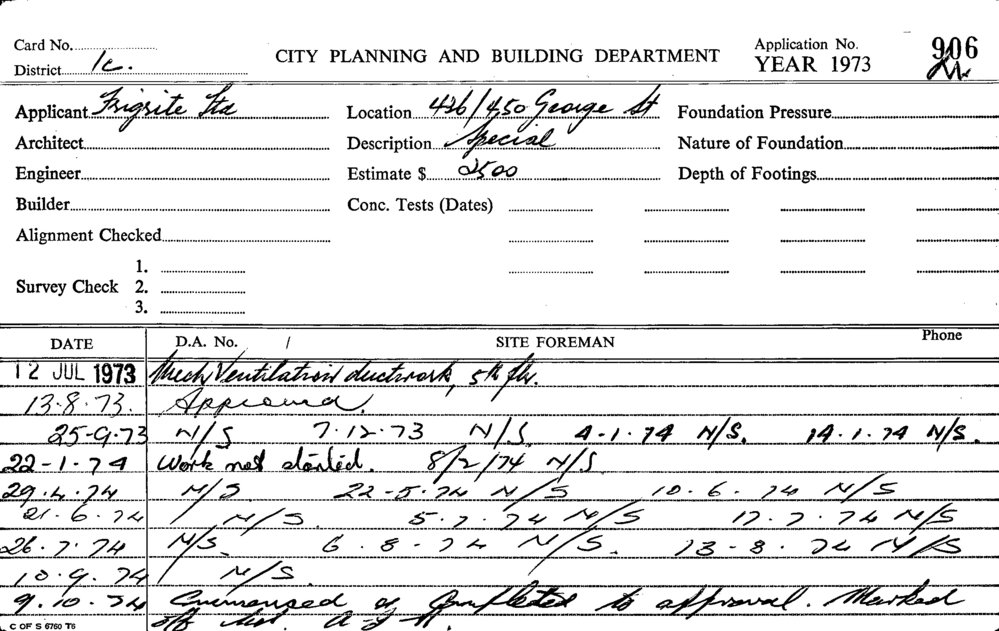 Card No.
District 1c.
CITY PLANNING AND BUILDING DEPARTMENT
Application No. 906
YEAR 1973
Applicant Frigrite Ltd
Location 426/450 George St
Foundation Pressure
Architect
Description Special
Nature of Foundation
Engineer
Estimate $ 2500
Depth of Footings
Builder
Conc. Tests (Dates)
Alignment Checked
1.
Survey Check 2.
3.
DATE D.A. No. / SITE FOREMAN Phone
12 JUL 1973 Mech Ventilation ductwork, 5th flr.
13.8.73. Approved.
25-9-73 N/S 7.12.73 N/S 4-1.74 N/S. 14.1.74 N/S.
22-1.74 Work not started. 8/2/74 N/S
29.4.74 N/S. 22-5.74 N/S 10.6.74 N/S
21.6.74 N/S. 5.7.74 N/S 17.7.74 N/S
26.7.74 N/S. 6.8.74 N/S. 13-8.74 N/S
10.9.74 N/S.
9.10.74 Commenced & Completed to approval. Marked
off list.
C OF S 6760 T6